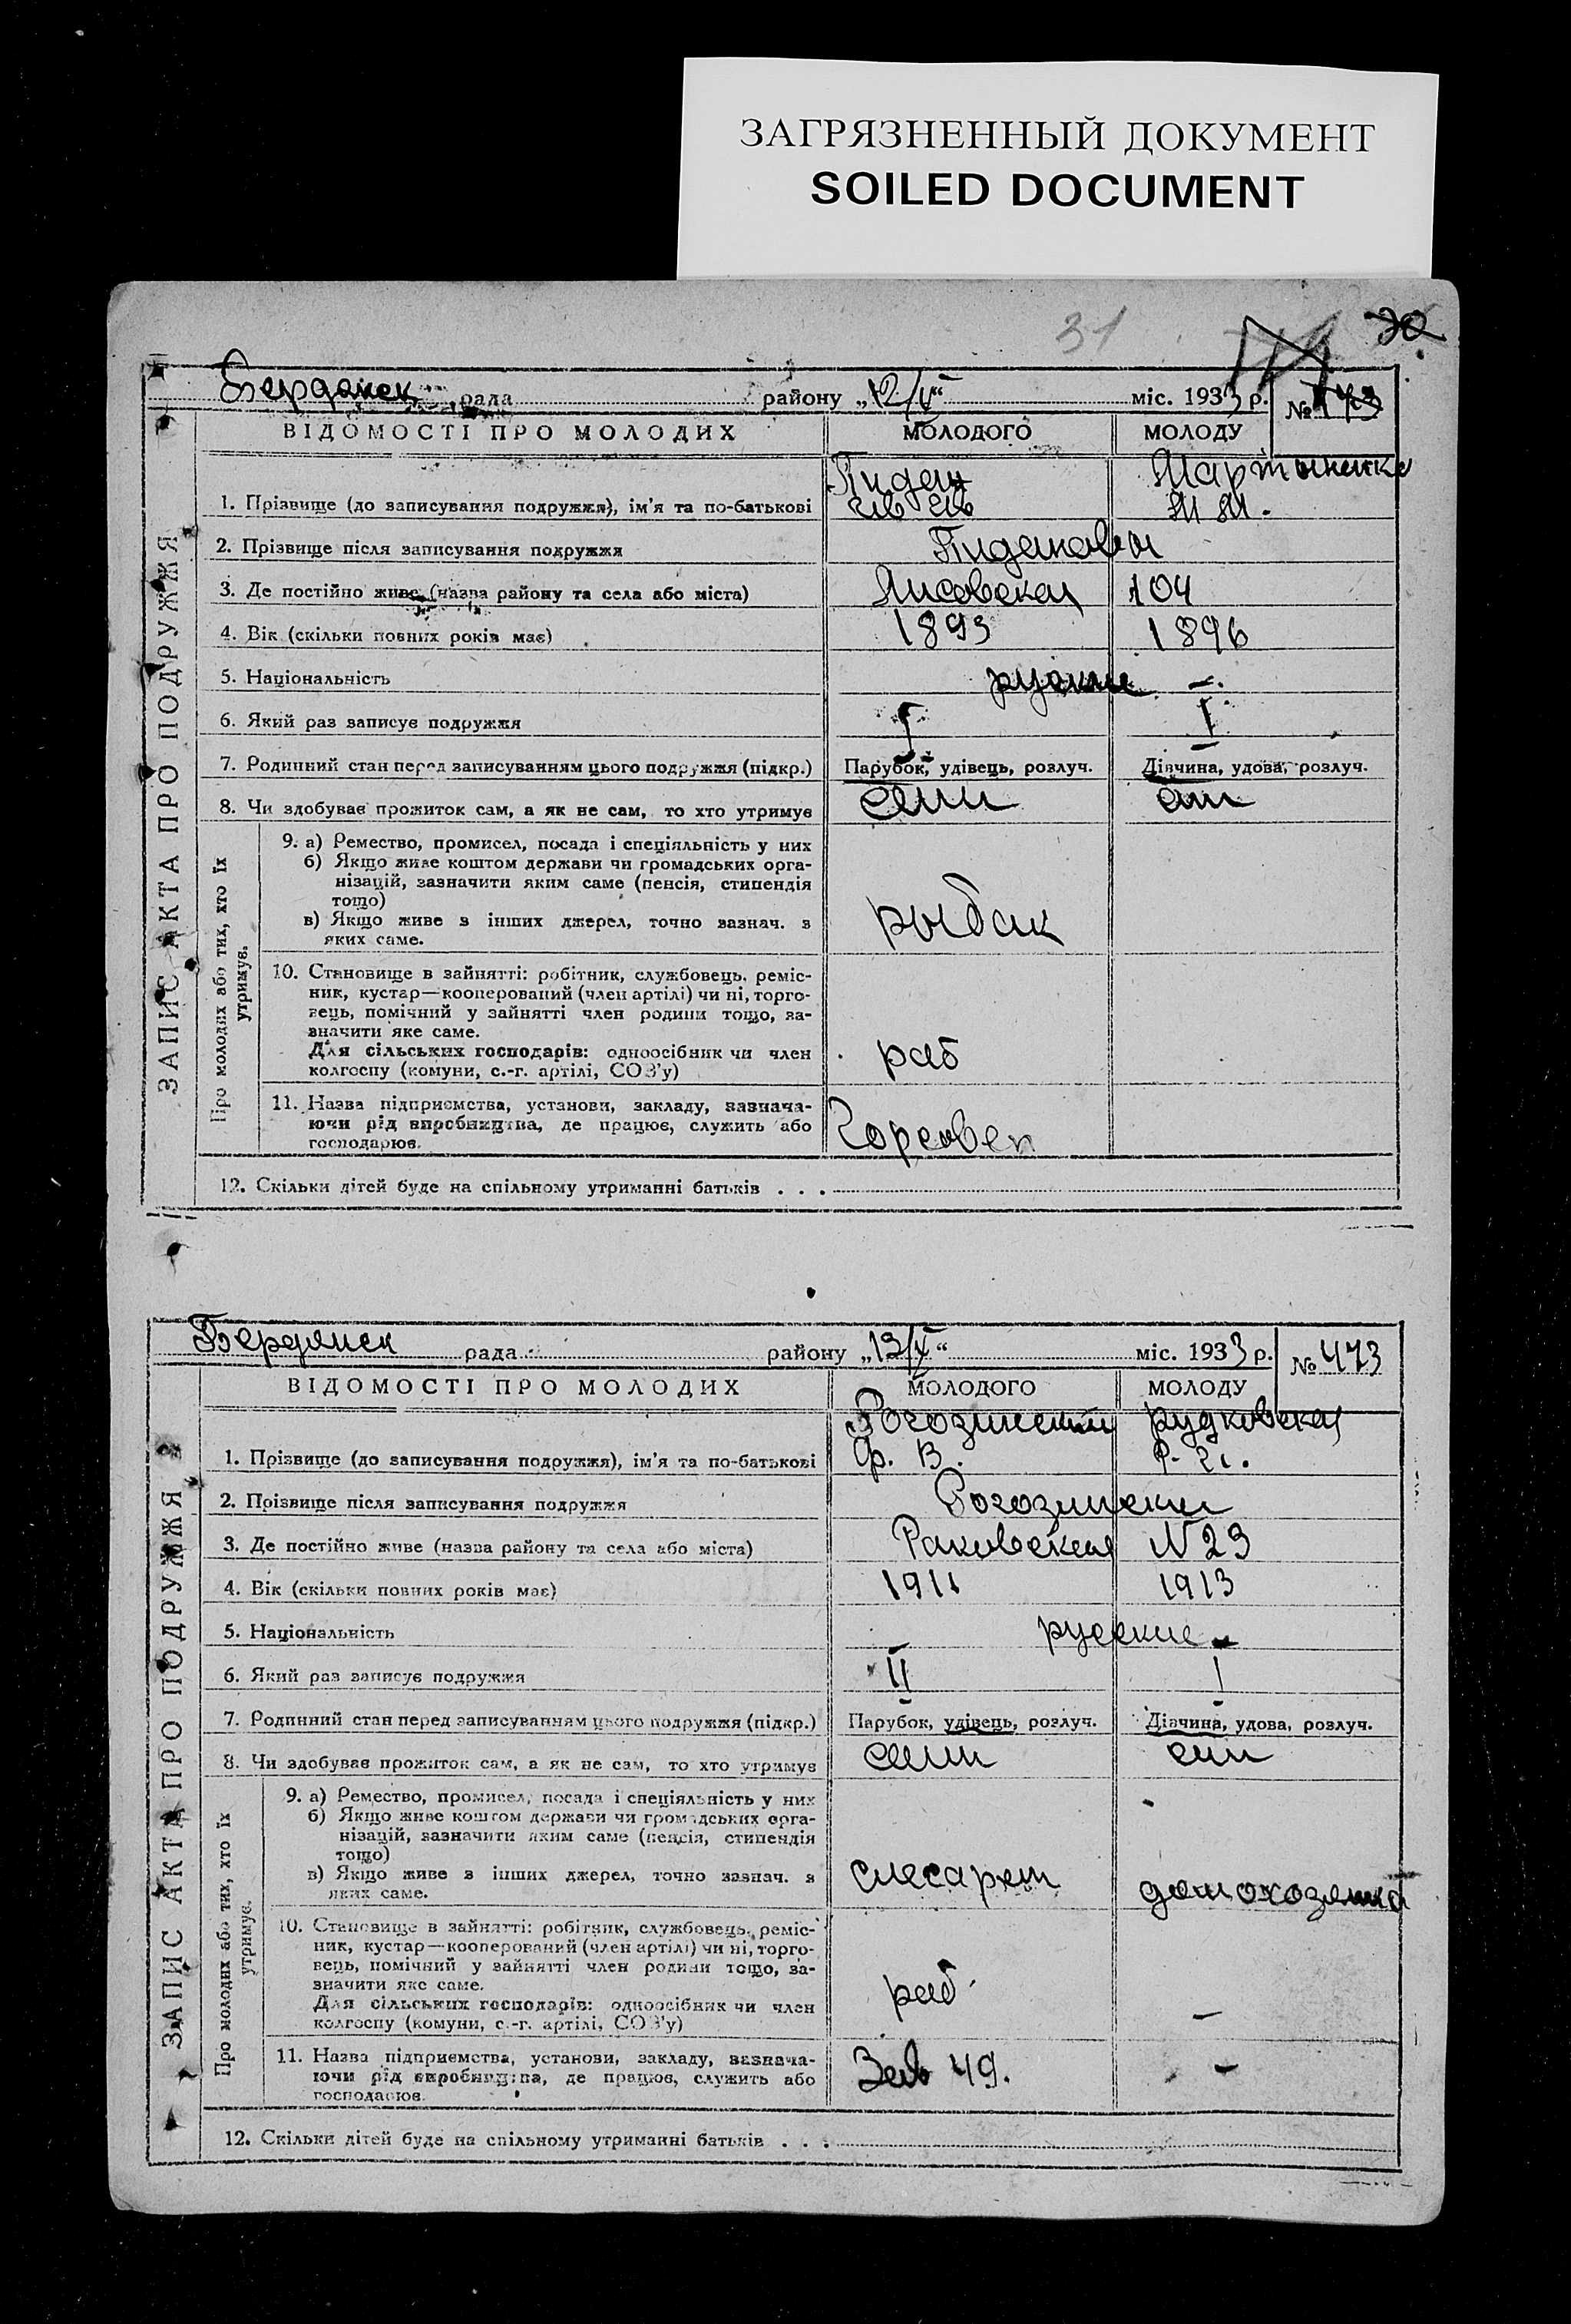 ЗАГРЯЗНЕННЫЙ ДОКУМЕНТ
SOILED DOCUMENT
31
30
Бердянск рада району „12/V“ міс. 1933 р. № 473
ВІДОМОСТІ ПРО МОЛОДИХ МОЛОДОГО МОЛОДУ
ЗАПИС АКТА ПРО ПОДРУЖЖЯ
Мартыненко
1. Прізвище (до записування подружжя), ім'я та по-батькові М М.
2. Прізвище після записування подружжя
3. Де постійно живе (назва району та села або міста) Лисовская 104
4. Вік (скільки повних років має) 1893 1896
5. Національність руские —
6. Який раз записує подружжя I I
7. Родинний стан перед записуванням цього подружжя (підкр.) Парубок, удівець, розлуч. Дівчина, удова, розлуч.
8. Чи здобуває прожиток сам, а як не сам, то хто утримує сами
Про молодих або тих, хто їх утримує.
9. а) Ремество, промисел, посада і спеціяльність у них
б) Якщо живе коштом держави чи громадських орга-
нізацій, зазначити яким саме (пенсія, стипендія
тощо)
в) Якщо живе з інших джерел, точно зазнач. з
яких саме.
рыбак
10. Становище в зайнятті: робітник, службовець, реміс-
ник, кустар—кооперований (член артілі) чи ні, торго-
вець, помічний у зайнятті член родини тощо, за-
значити яке саме.
Для сільських господарів: одноосібник чи член
колгоспу (комуни, с.-г. артілі, СОЗ'у)
раб
11. Назва підприємства, установи, закладу, зазнача-
ючи рід виробництва, де працює, служить або
господарює.
Горсовет
12. Скільки дітей буде на спільному утриманні батьків . . .
Бердянск рада району „13/V“ міс. 1933 р. № 473
ВІДОМОСТІ ПРО МОЛОДИХ МОЛОДОГО МОЛОДУ
ЗАПИС АКТА ПРО ПОДРУЖЖЯ
Рогозинский рудковская
1. Прізвище (до записування подружжя), ім'я та по-батькові Ф. В.
2. Прізвище після записування подружжя Рогозинские
3. Де постійно живе (назва району та села або міста) Раковская N 23
4. Вік (скільки повних років має) 1911 1913
5. Національність русские —
6. Який раз записує подружжя II I
7. Родинний стан перед записуванням цього подружжя (підкр.) Парубок, удівець, розлуч. Дівчина, удова, розлуч.
8. Чи здобуває прожиток сам, а як не сам, то хто утримує сами
Про молодих або тих, хто їх утримує.
9. а) Ремество, промисел, посада і спеціяльність у них
б) Якщо живе коштом держави чи громадських орга-
нізацій, зазначити яким саме (пенсія, стипендія
тощо)
в) Якщо живе з інших джерел, точно зазнач. з
яких саме.
домохозяйка
10. Становище в зайнятті: робітник, службовець, реміс-
ник, кустар—кооперований (член артілі) чи ні, торго-
вець, помічний у зайнятті член родини тощо, за-
значити яке саме.
Для сільських господарів: одноосібник чи член
колгоспу (комуни, с.-г. артілі, СОЗ'у)
раб —
11. Назва підприємства, установи, закладу, зазнача-
ючи рід виробництва, де працює, служить або
господарює.
49. —
12. Скільки дітей буде на спільному утриманні батьків . . .